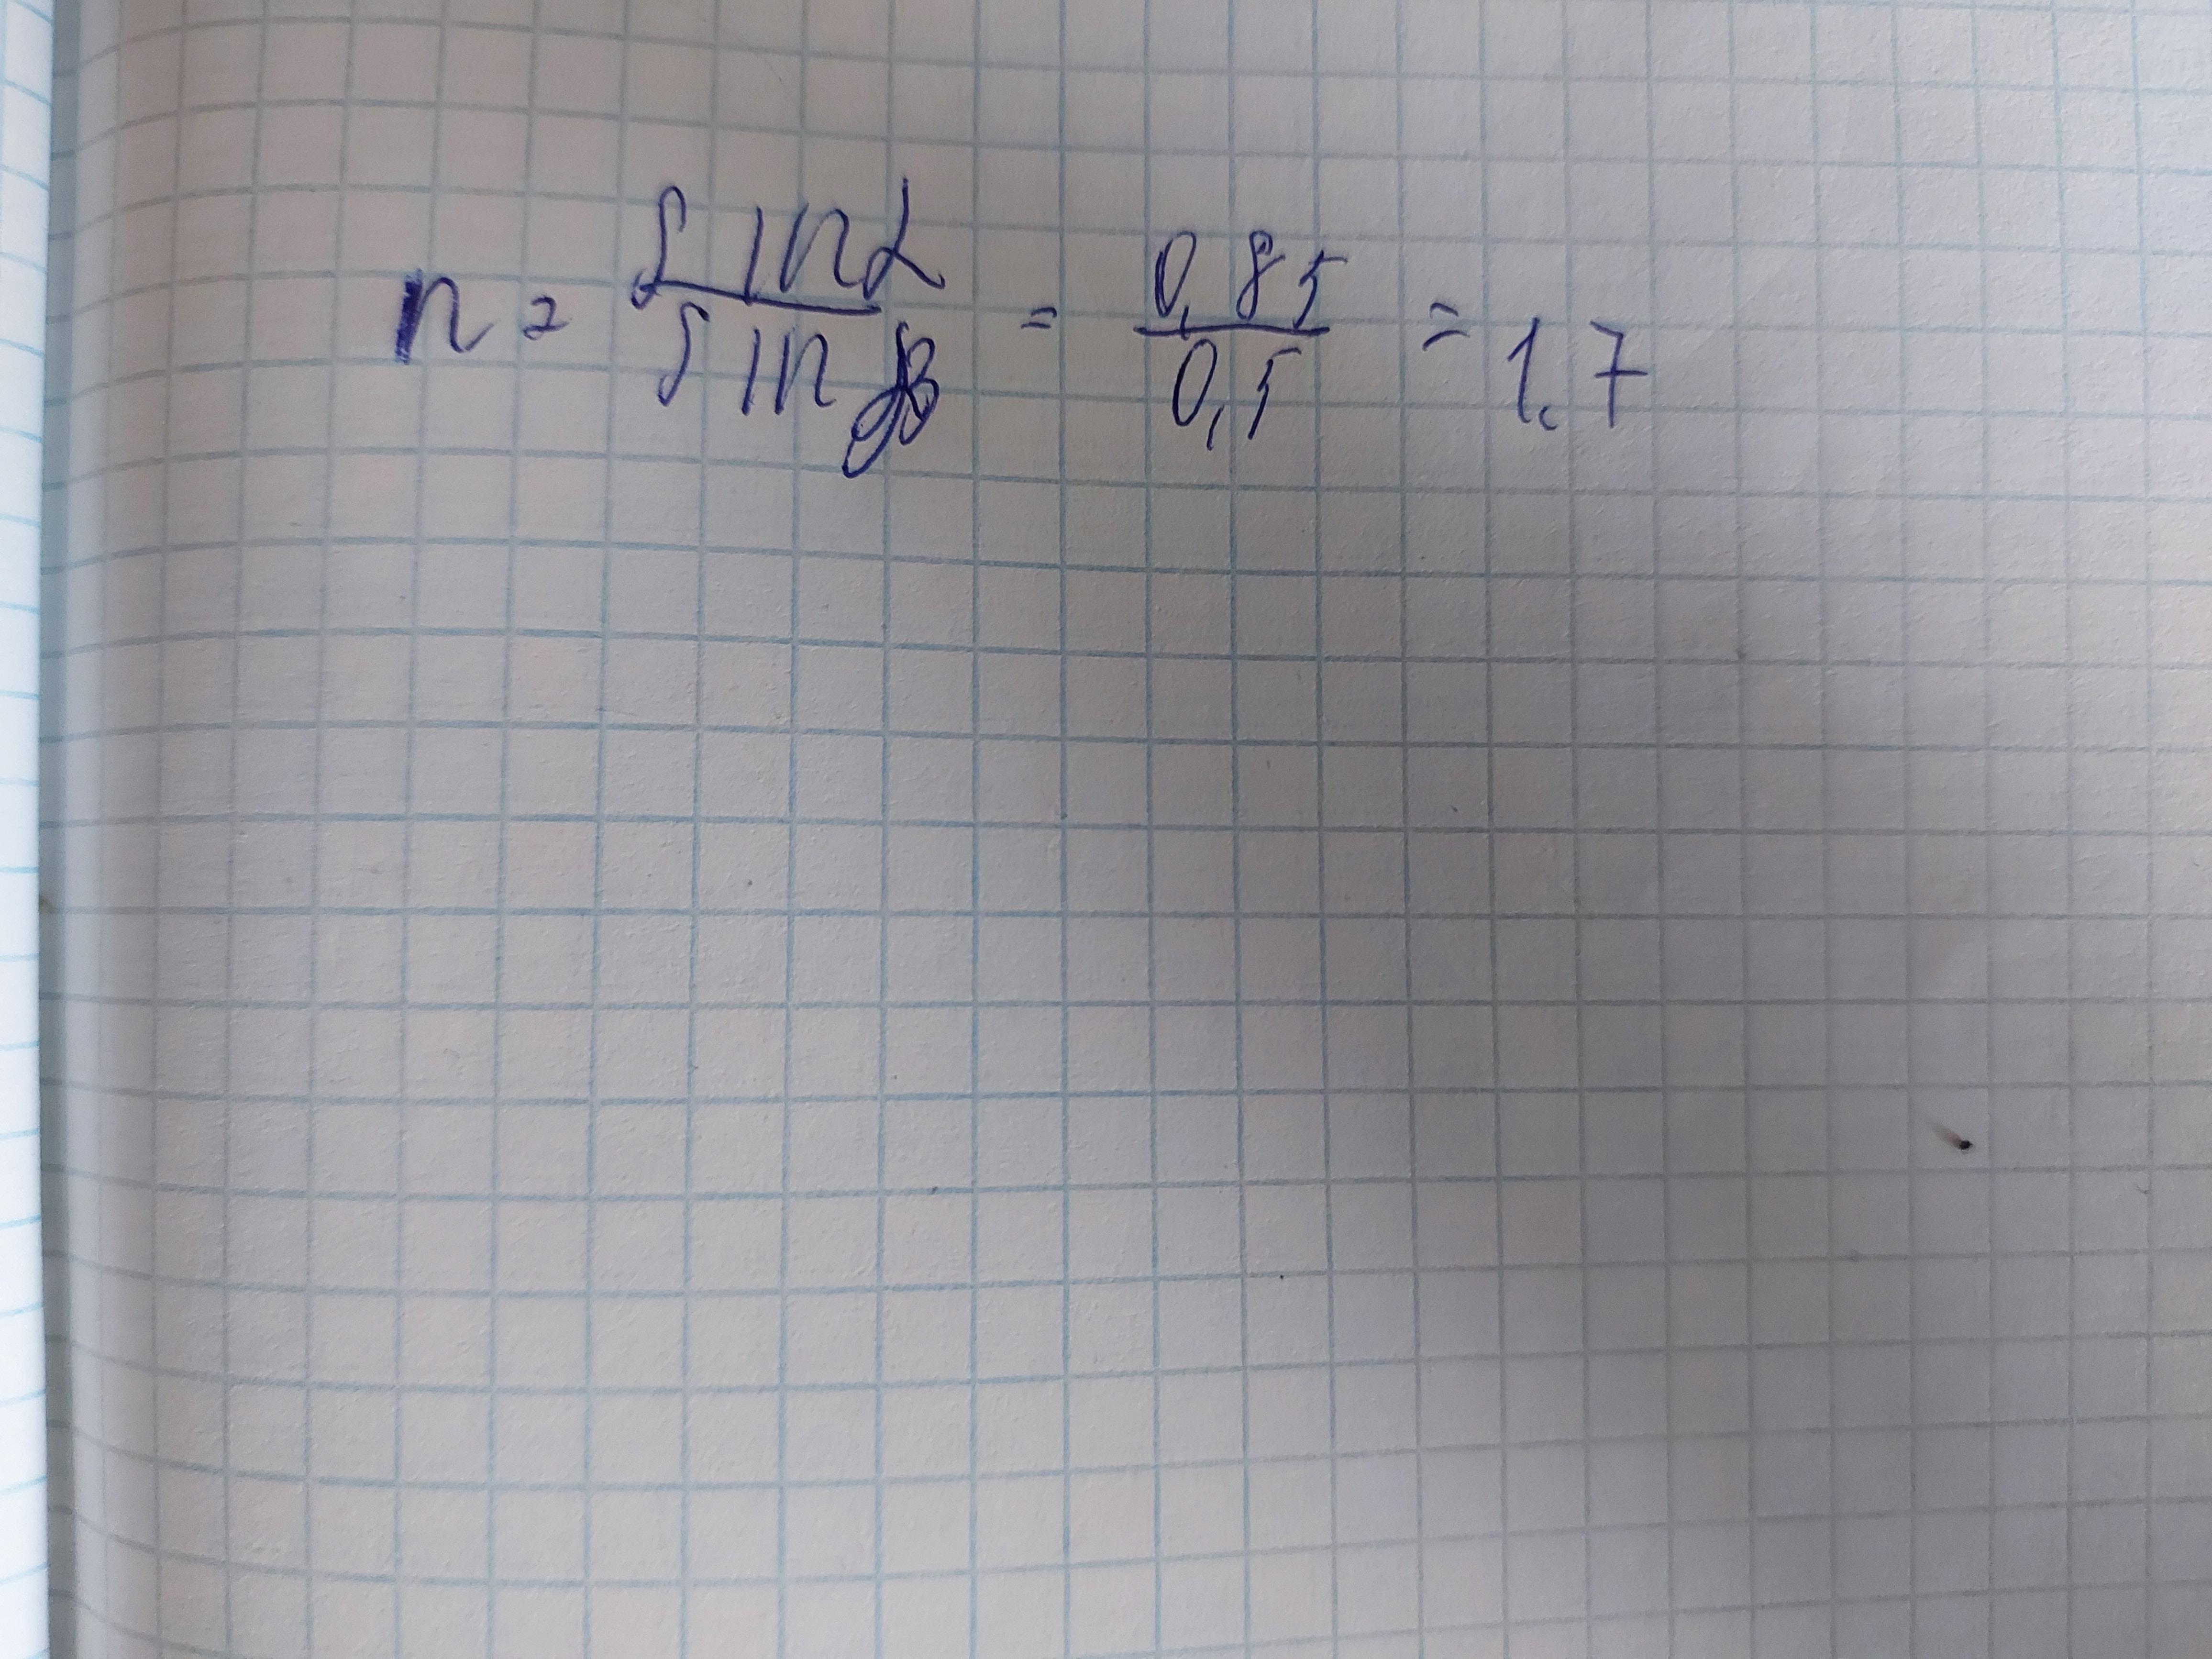 n = sin α / sin β = 0,85 / 0,5 = 1,7